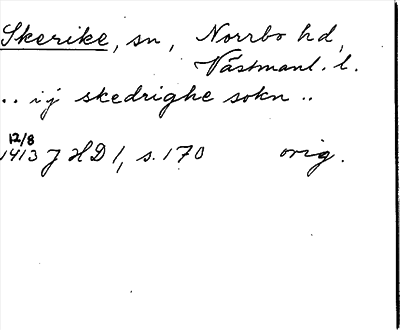 Skerike, sn, Norrbo hd,
Västmanl. l.
.. i j skedrighe sokn ..
12/8
1413 J HD 1, s. 170 orig.